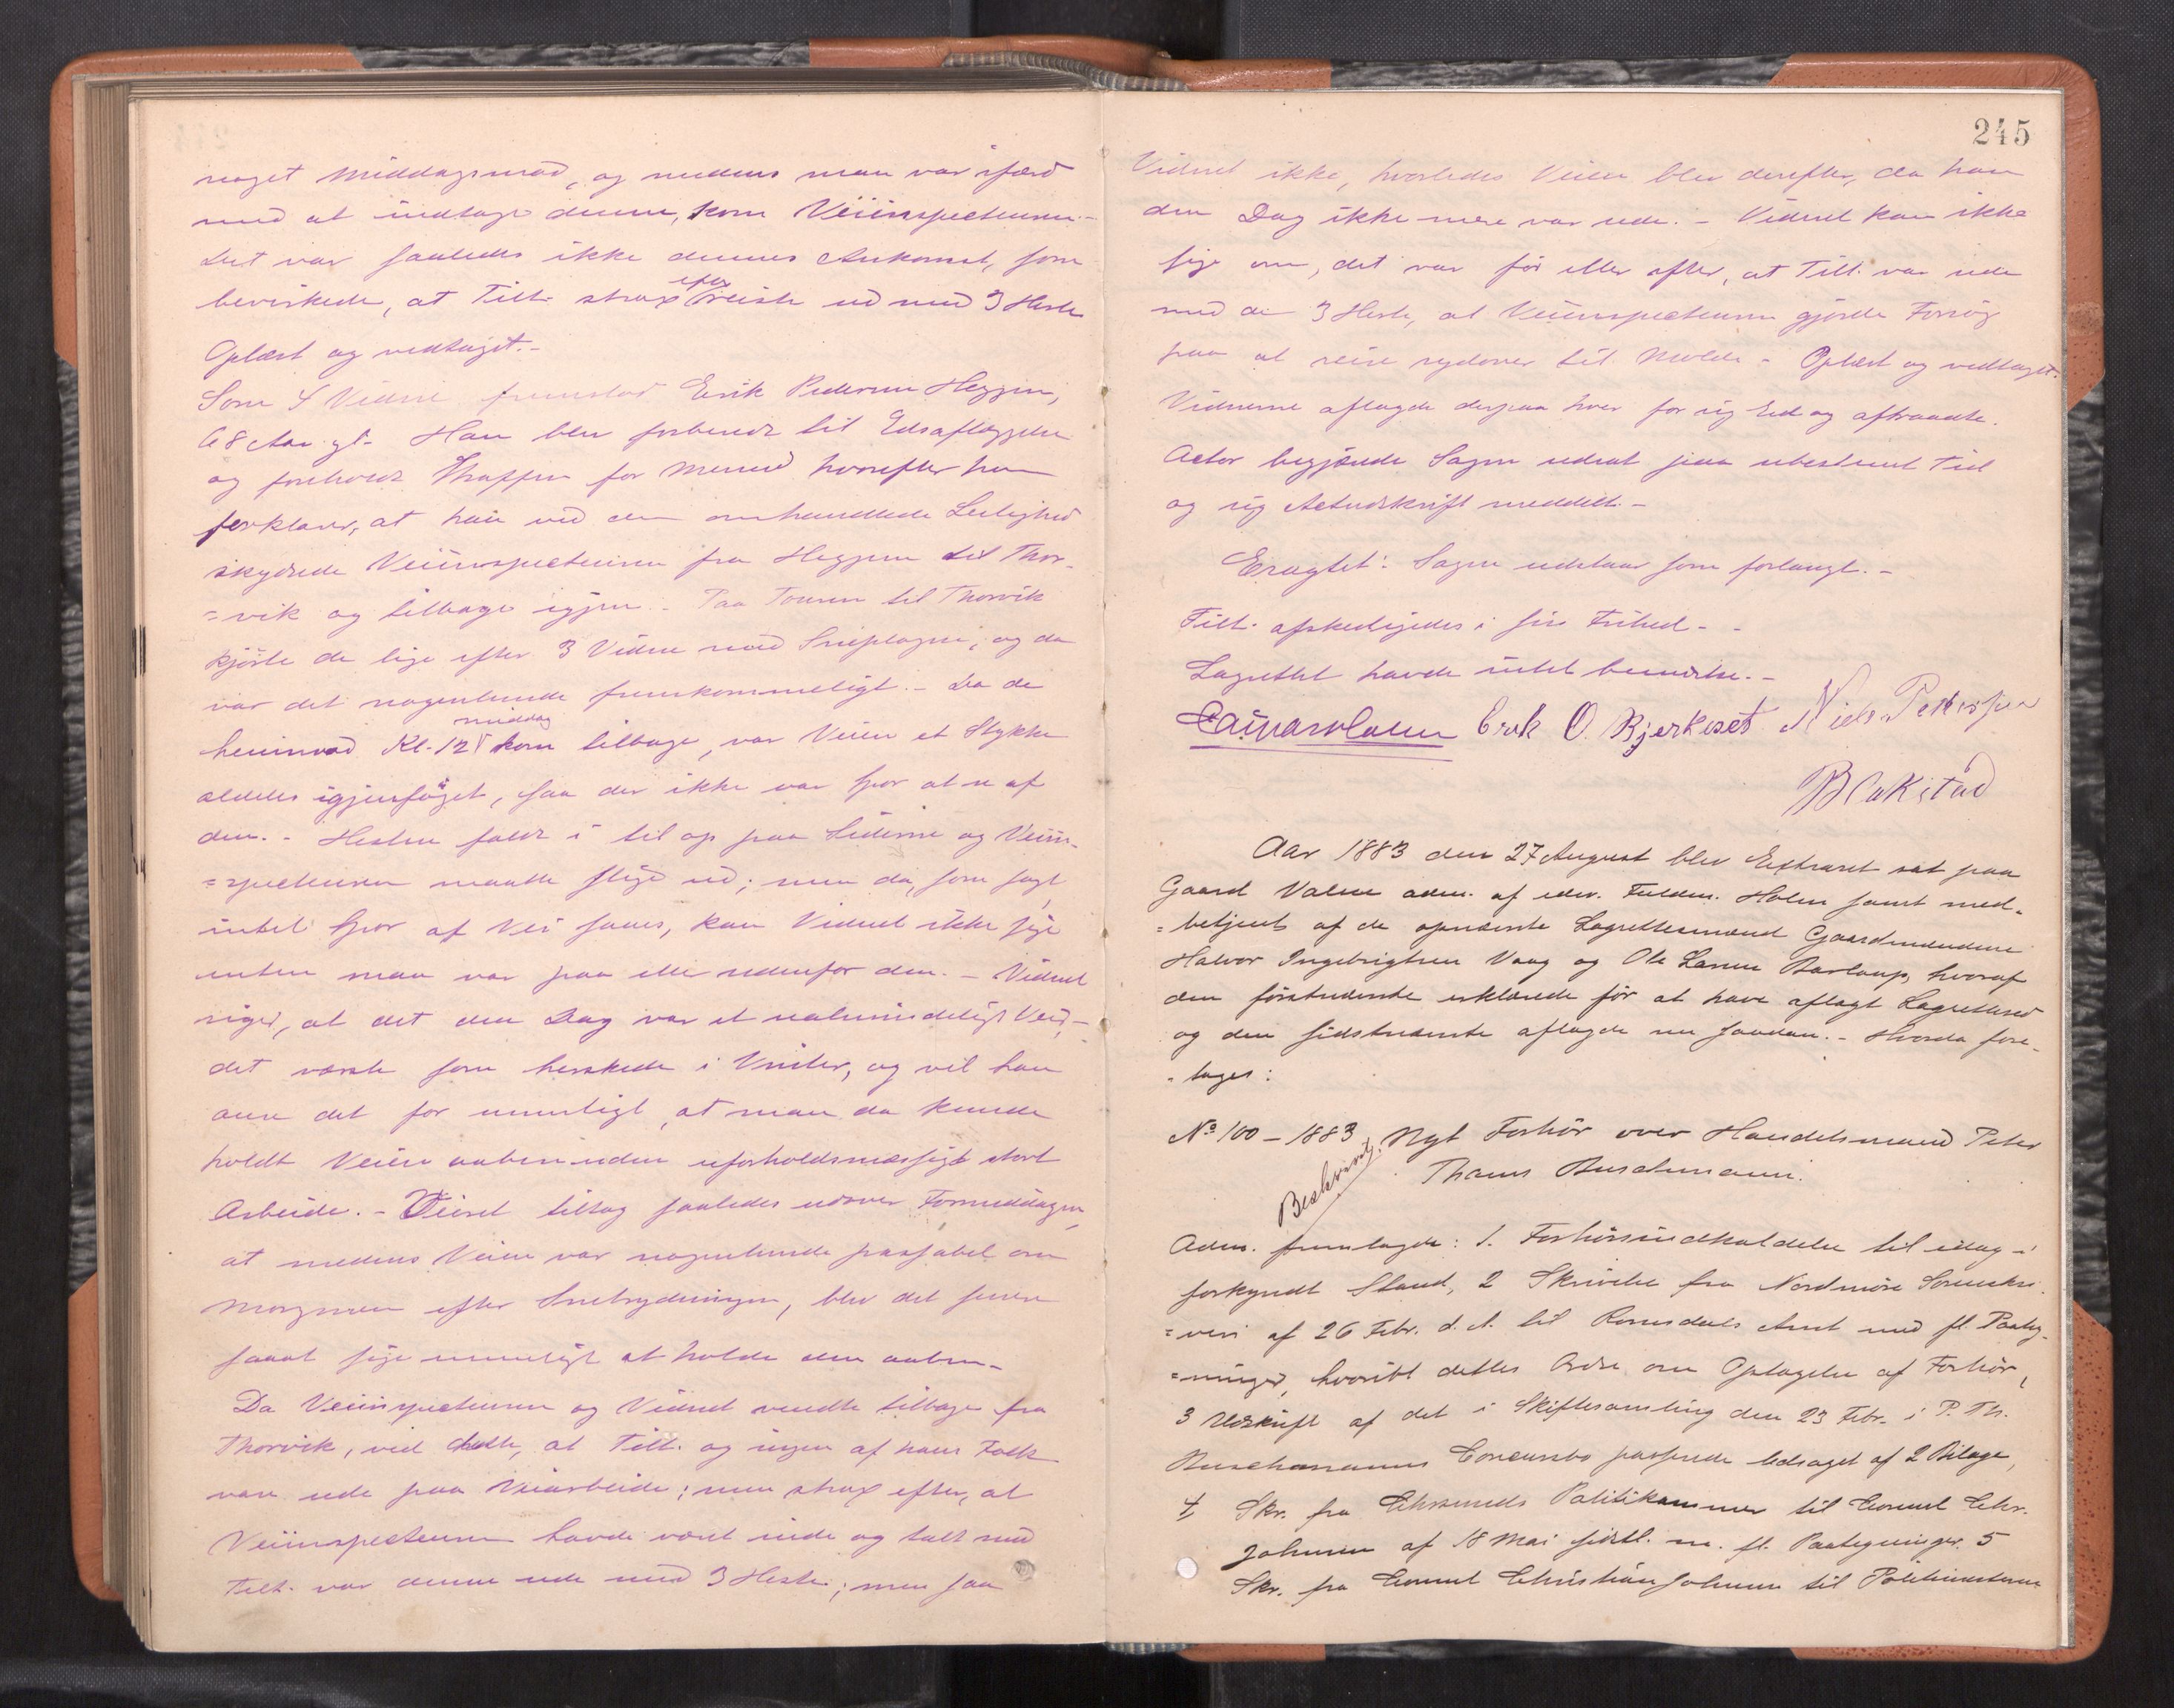 noget Middagsmad, og medens man var ifærd
med at indtage denne, kom Veiinspecteuren.-
Det var saaledes ikke dennes Ankomst, som
bevirkede, at Tilt. strax efter reiste ud med 3 Heste
Oplæst og vedtaget.-
Som 4 Vidne fremstod Erik Pedersen Heggem,
68 Aar gl- Han blev forberedt til Edsaflæggelse
og foreholdt Straffen for Mened hvorefter han
forklarer, at han ved den omhandlede Leilighed
skydsede Veiinspecteuren fra Heggem til Thor-
=vik og tilbage igjen.- Paa Touren til Thorvik
kjørte de lige efter 3 Vidne med Sneplogen, og da
var det nogenlunde fremkommeligt.- Da de
henimod Kl. 12 middag kom tilbage, var Veien et Stykke
aldeles igjenføget, saa der ikke var Spor at se af
den.- Hesten faldt i til op paa Siderne og Veiin-
=specteuren maatte stige ud; men da, som sagt,
intet Spor af Vei saaes, kan Vidnet ikke sige
enten man var paa eller udenfor den.- Vidnet
siger, at det den Dag var et ualmindeligt Veir,-
det værste som herskede i Vinter, og vil han
anse det for umuligt, at man da kunde
holdt Veien aaben uden uforholdsmæssigt stort
Arbeide.- Veiret tiltog saaledes udover Formiddagen,
at medens Veien var nogenlunde passabel om
Morgenen efter Snebrydningen, blev det senere
saaat sige umuligt at holde den aaben.-
Da Veiinspecteuren og Vidnet vendte tilbage fra
Thorvik, ved dette, at Tilt. og ingen af hans Folk
var ude paa Veiarbeide; men strax efter, at
Veiinspecteuren havde været inde og talt med
Tilt. var denne ude med 3 Heste; men saa
245
Vidnet ikke, hvorledes Veien blev derefter, da han
den Dag ikke mere var ude.- Vidnet kan ikke
sige om, det var før eller efter, at Tilt. var ude
med de 3 Heste, at Veiinspecteuren gjørde Forsøg
paa at reise sydover til Molde- Oplæst og vedtaget.
Vidnerne aflagde derpaa hver for sig Ed og aftraadte.
Actor begjærede Sagen udsat paa ubestemt Tid
og sig Actudskrift meddelt.-
Eragtet: Sagen udstaar som forlangt.-
Tilt. afskedigedes i sin Frihed- -
Lagrettet havde intet bemærke.-
Einar Holm Erik O. Bjerkeset Niels Pedersen
Blakstad
Aar 1883 den 27 August blev Extraret sat paa
Gaard Valen adm. af edsv. Fuldm. Holm samt med-
=betjent af de opnævnte Lagrettesmænd Gaardmændene
Halvor Ingebrigtsen Vaag og Ole Larsen hvoraf
den førstnævnte erklærede før at have aflagt Lagretteed
og den sidstnævnte aflagde nu saadan.- Hvorda fore-
-tages:
No 100-1883. Nyt Forhør over Handelsmand Peter
Thams Buschmann.
Beskrevet.
Adm. fremlagde: 1. Forhørsindkaldelse til idag i
forkyndt Stand, 2 Skrivelse fra Nordmøre Sorenskri-
=veri af 26 Febr. d. A. til Romsdals Amt med fl. Paateg-
=ninger, hvoriblt dettes Ordre om Optagelse af Forhør,
3 Udskrift af det i Skiftesamling den 23 Febr. i P. Th.
Buschmanns Concursbo passerede ledsaget af 2 Bilage,
4 Skr. fra Chrsunds Politikammer til Consul Chr.
Johnsen af 18 Mai sidstl. m. fl. Paategninger. 5
Skr. fra Consul Christian Johnsen til Politimesteren